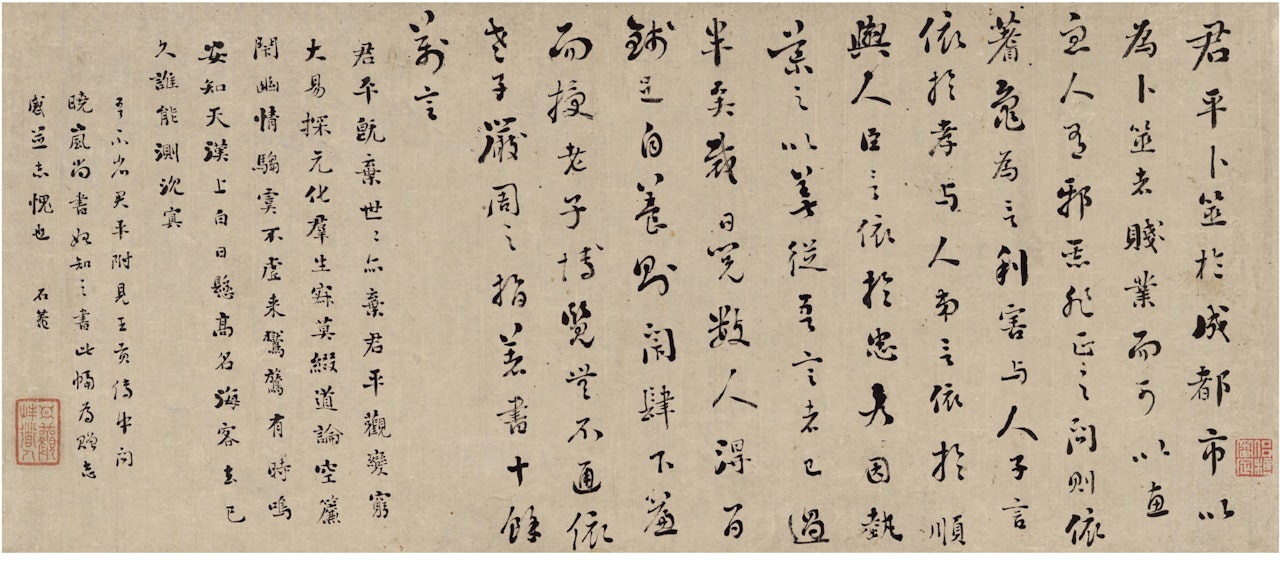 君平卜筮於成都市以
為卜筮者賤業而可以惠
眾人有邪惡非正之問則依
蓍龜為言利害與人子言
依於孝與人弟言依於順
與人臣言依於忠各因埶
業之以善從吾言者已過
半矣裁日閱數人得百
錢足自養則閉肆下簾
而授老子博覽無不通依
老子嚴周之指著書十餘
萬言
君平既棄世世亦棄君平觀變窮
大易探元化羣生寂莫綴道論空簾
閉幽情騶虞不虛來鸑鷟有時鳴
安知天漢上白日懸高名海客去已
久誰能測沈冥
予不省君平附見王貢傳中問
曉嵐尚書始知之書此幅為贈志
感並志愧也 石菴